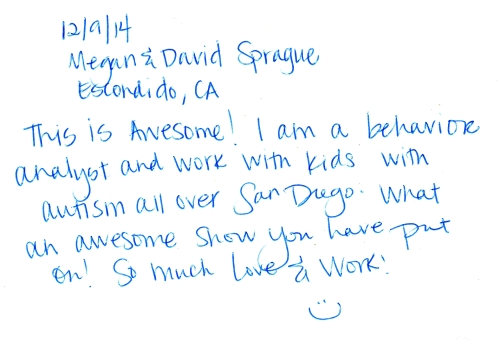 12/9/14
Megan & David Sprague
Escondido, CA
This is Awesome! I am a behavior
analyst and work with kids with
autism all over San Diego. What
an awesome show you have put
on! So much Love & Work!